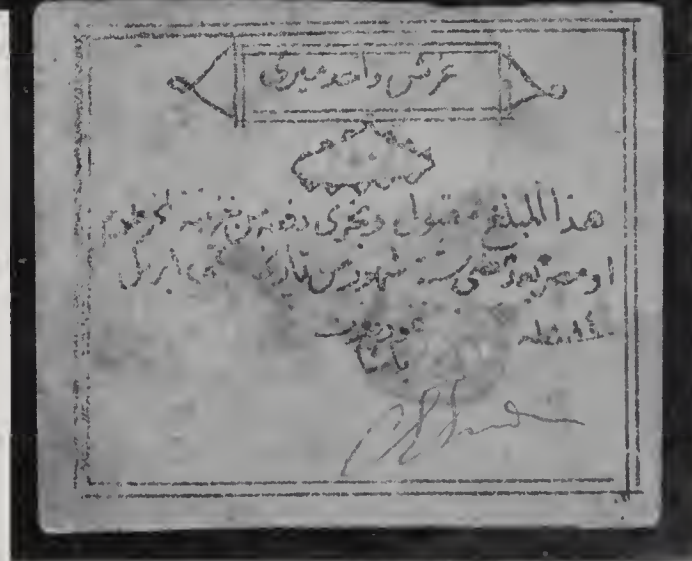 غرش واحد
هذا المبلغ مقبول ويجرى دفعه من خزينة الخرطوم
او مصر بعد مضى ستة شهور من تاريخه ابريل
غوردون
باشا